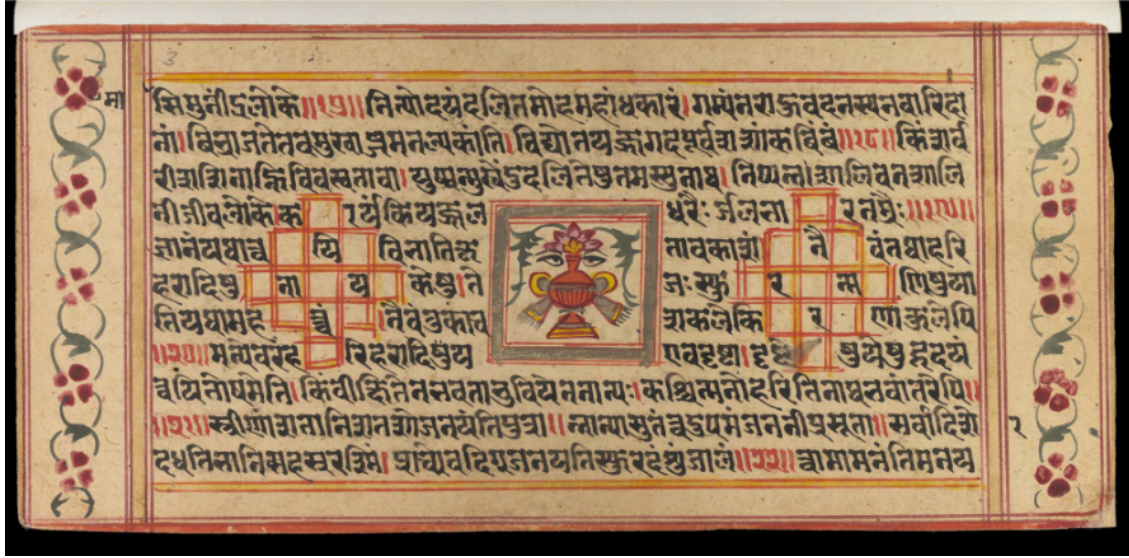 ३
मा
सि मुनींद्र लोके॥१७॥ नित्योदयं दलितमोहमहांधकारं। गम्यं न राहुवदनस्य न वारिदा
नां। विभ्राजते तव मुखाब्जमनल्पकांति। विद्योतयज्जगदपूर्वशशांकबिंबं॥१८॥ किं शर्व
रीशशिनाह्नि विवस्वता वा। युष्मन्मुखेंदुदलितेषु तमस्सु नाथ। निष्पन्नशालिवनशालि
नी जीवलोके। कार्यं कियज्जलधरैः र्जलभारनम्रैः॥१९॥
ज्ञानं यथा त्वयि विभाति कृतावकाशं नैवं तथा हरि
हरादिषु नायकेषु। तेजः स्फुरन्मणिषु या
ति यथा महत्वं। नैवं तु काचशकले किरणाकुलेपि
॥२०॥ मन्ये वरं हरिहरादिषु य एव दृष्टा। दृष्टेषु येषु हृदयं
त्वयि तोषमेति। किं वीक्षितेन भवता भुवि येन नान्यः। कश्चिन्मनो हरति नाथ भवांतरेपि।
॥२१॥ स्त्रीणां शतानि शतशो जनयंति पुत्रान्। नान्या सुतं त्वदुपमं जननी प्रसूता॥ सर्वा दिशो
दधति भानि सहस्ररश्मिं। प्राच्येव दिग् जनयति स्फुरदंशुजालं॥२२॥ त्वामामनंति मुनय
२